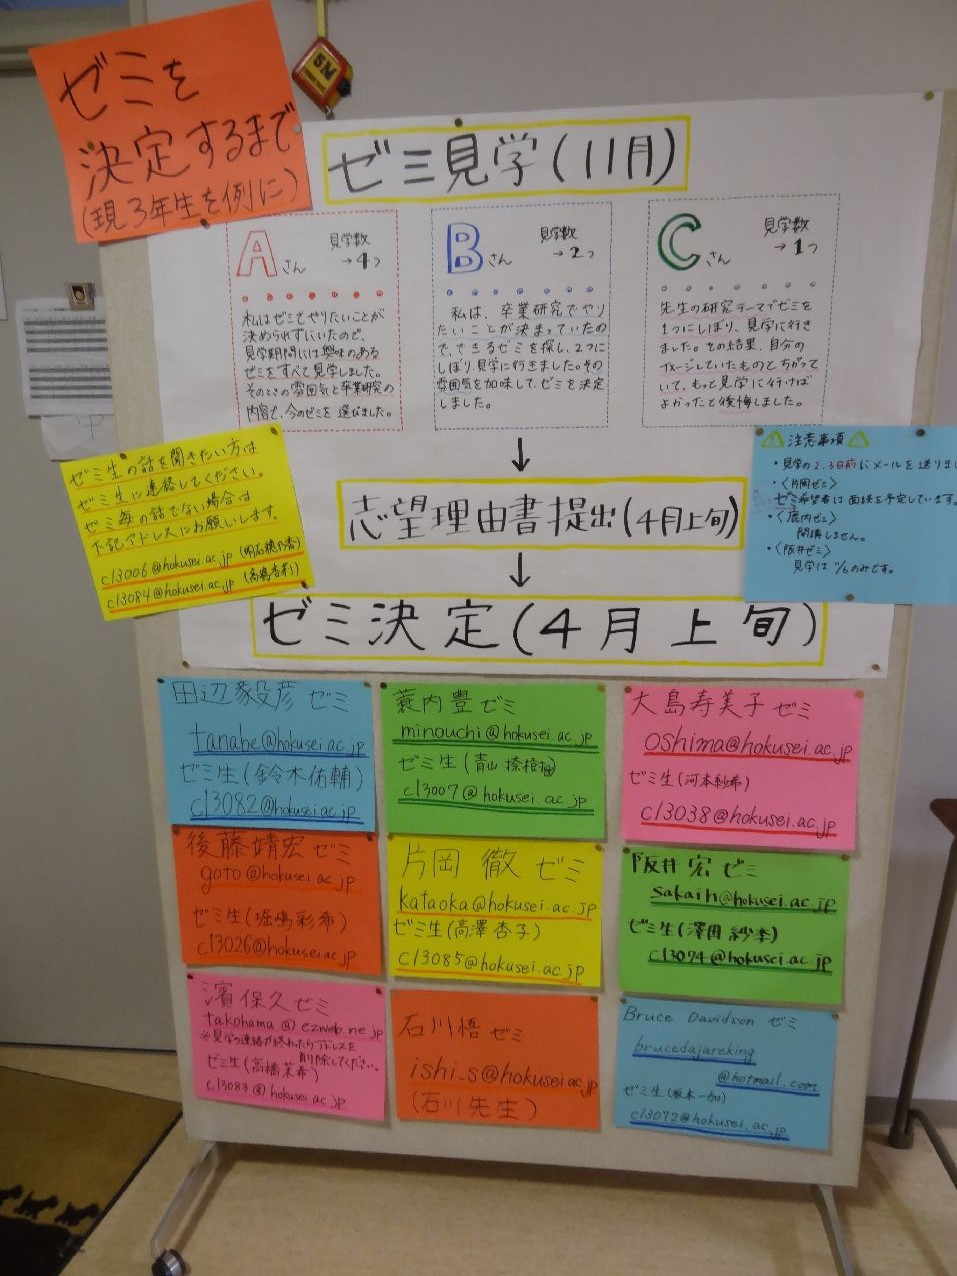 ゼミを
決定するまで
(現3年生を例に)
5M
ゼミ見学(11月)
Aさん 見学数
→4つ
私はゼミでやりたいことが
決められずにいたので、
見学期間には興味のある
ゼミをすべて見学しました。
そのときの雰囲気と卒業研究の
内容で、今のゼミを選びました。
Bさん 見学数
→2つ
私は、卒業研究でやり
たいことが決まっていたの
で、できるゼミを探し、2つに
しぼり、見学に行きました。その
雰囲気を加味して、ゼミを決定
しました。
Cさん 見学数
→1つ
先生の研究テーマでゼミを
1つにしぼり、見学に行き
ました。その結果、自分の
イメージしていたものとちがって
いて、もっと見学に行けば
よかったと後悔しました。
↓
志望理由書提出(4月上旬)
↓
ゼミ決定(4月上旬)
ゼミ生の話を聞きたい方は
ゼミ生に連絡してください。
ゼミ毎の話でない場合は
下記アドレスにお願いします。
c13006@hokusei.ac.jp (明石穂乃香)
c13084@hokusei.ac.jp (高嶋杏莉)
注意事項
・見学の2.3日前にメールを送りま
・〈片岡ゼミ〉
ゼミ希望者は面談を予定しています。
・〈鹿内ゼミ〉
開講しません。
・〈阪井ゼミ〉
見学は11/6のみです。
田辺毅彦ゼミ
tanabe@hokusei.ac.jp
ゼミ生(鈴木佑輔)
c13082@hokusei.ac.jp
蓑内豊ゼミ
minouchi@hokusei.ac.jp
ゼミ生(青山
c13007@hokusei.ac.jp
大島寿美子ゼミ
oshima@hokusei.ac.jp
ゼミ生(河本紗希)
c13038@hokusei.ac.jp
後藤靖宏ゼミ
goto@hokusei.ac.jp
ゼミ生(堀嶋彩希)
c13026@hokusei.ac.jp
片岡徹ゼミ
kataoka@hokusei.ac.jp
ゼミ生(高澤杏子)
c13085@hokusei.ac.jp
阪井宏ゼミ
sakaih@hokusei.ac.jp
ゼミ生(澤田紗季)
c13074@hokusei.ac.jp
濱保久ゼミ
takohama@ezweb.ne.jp
※見学の連絡が終わったらアドレスを
削除してください。
ゼミ生(高橋茉希)
c13083@hokusei.ac.jp
石川悟ゼミ
ishi_s@hokusei.ac.jp
(石川先生)
Bruce Davidson ゼミ
brucedajareking
@hotmail.com
ゼミ生(坂本一加)
c13072@hokusei.ac.jp